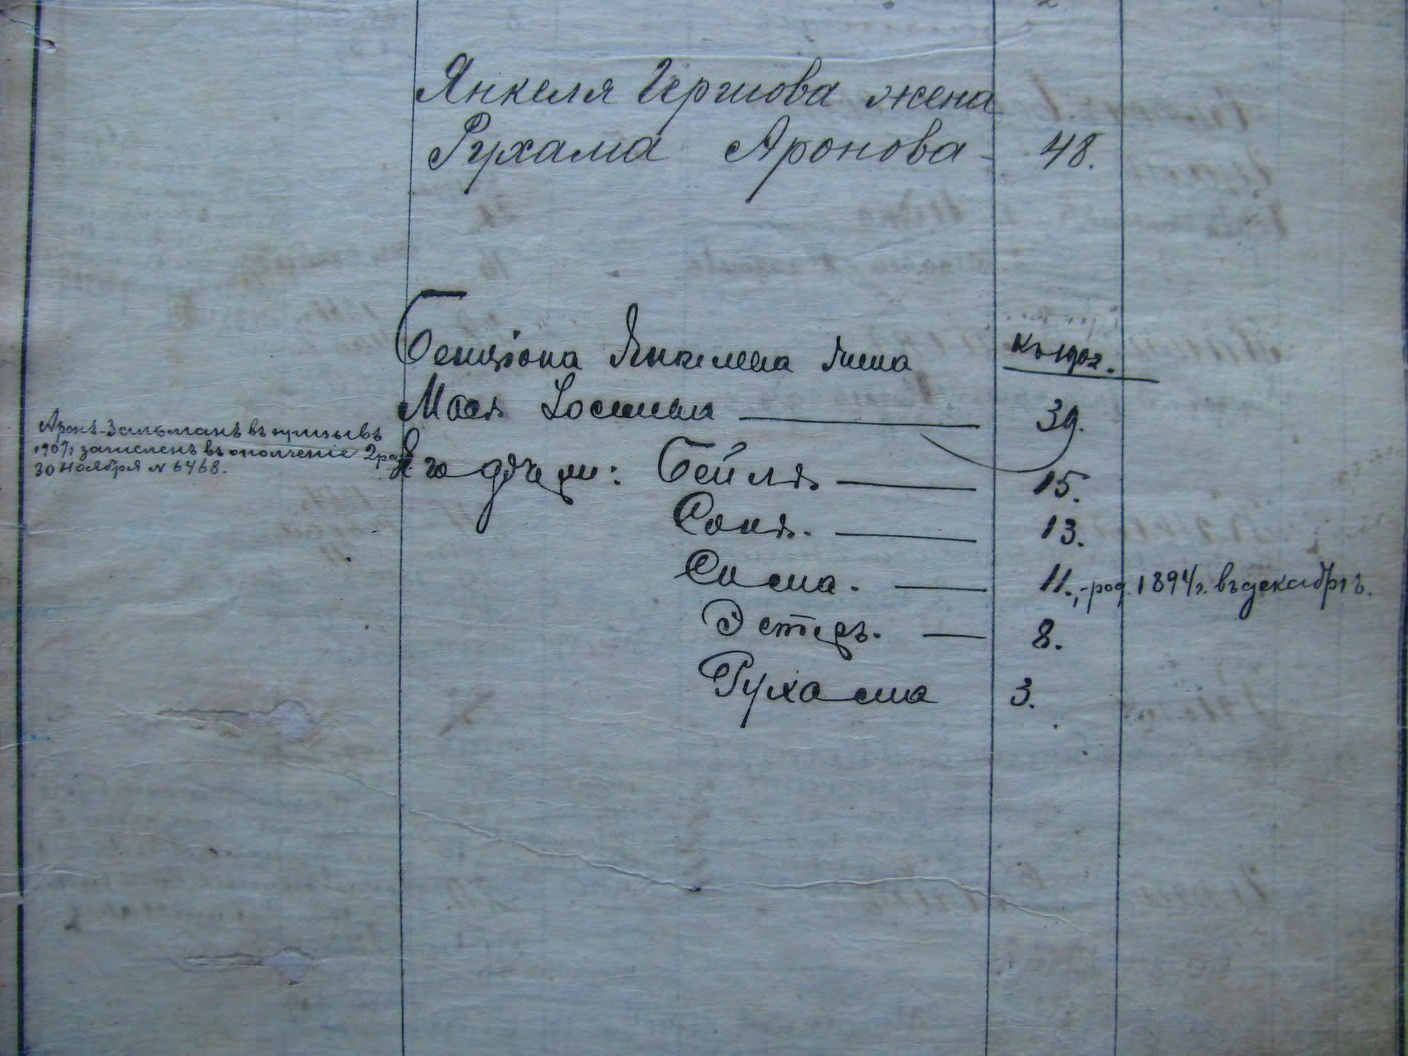 Янкеля Гершова жена
Рухама Аронова - 48.
Бенціона Янкелева жена
къ 190 г.
Мася 39.
Аронъ-Зальманъ въ призывъ
1907 г. зачисленъ въ ополченіе 2 раз.
30 Ноября № 6468.
Его дочери: Бейля 15.
Соня. 13.
Сима. 11., - род. 1894 г. въ декабрѣ.
Эстеръ. 8.
Рухама 3.